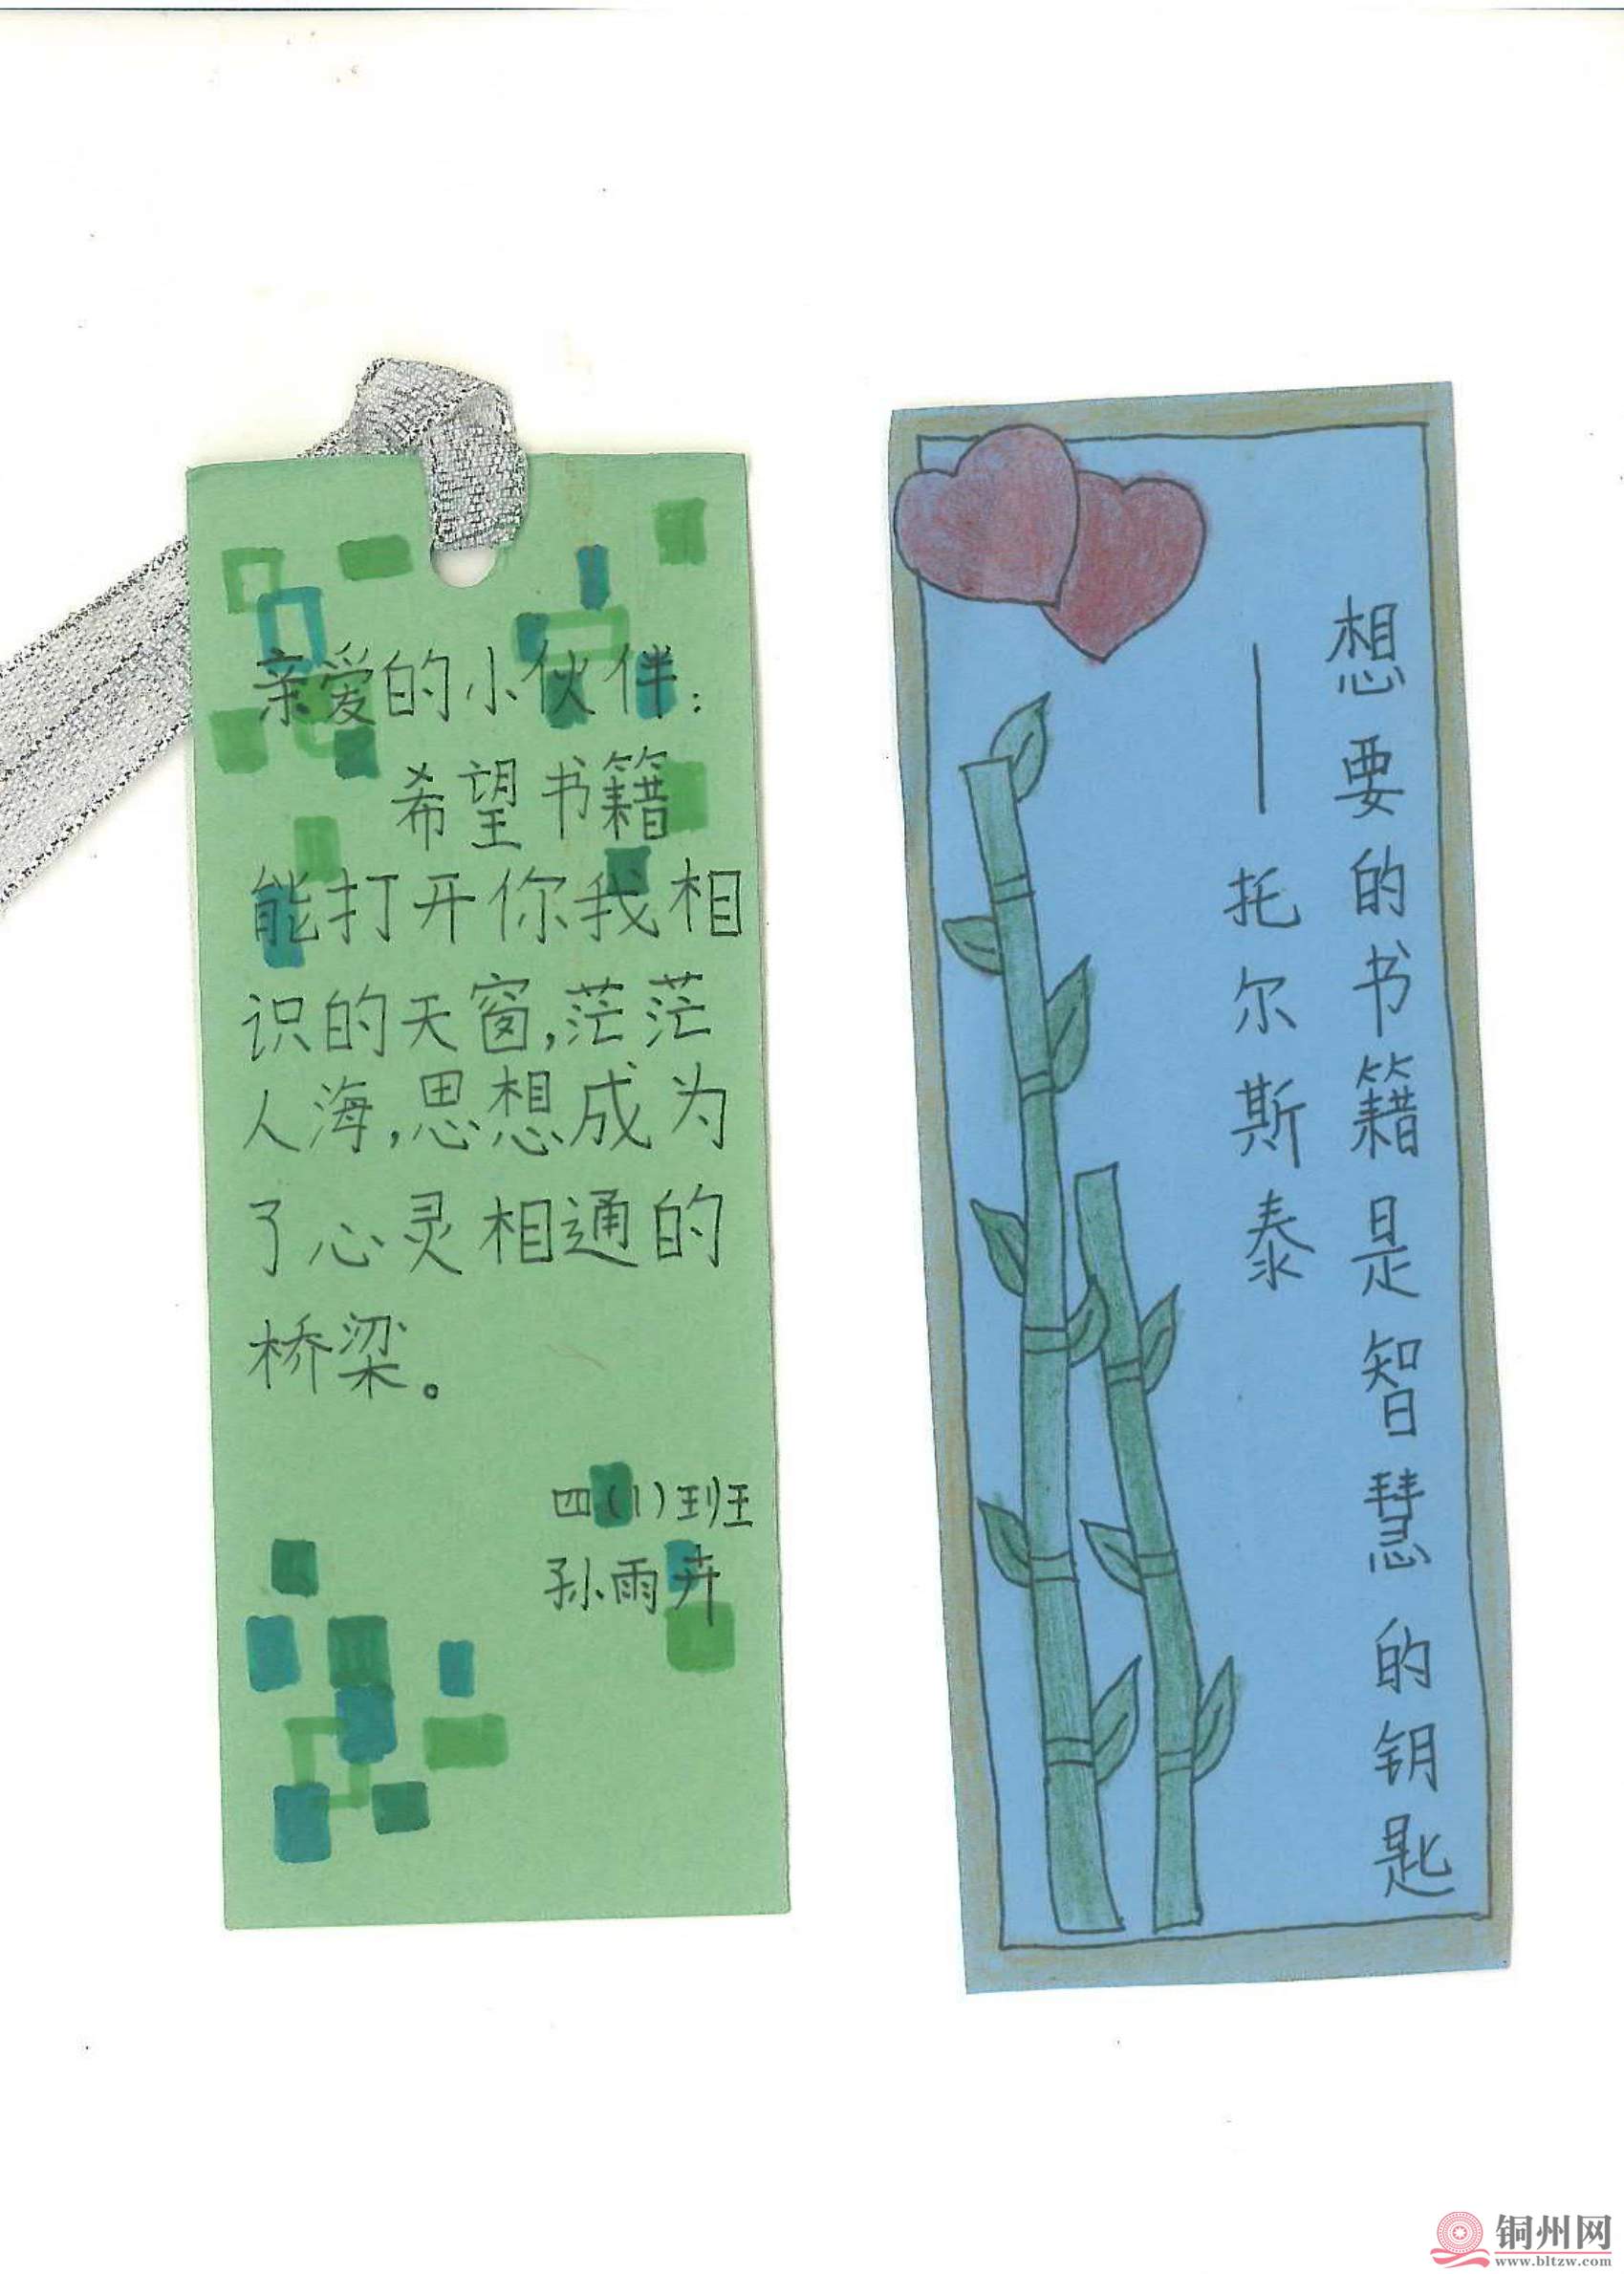 亲爱的小伙伴：
希望书籍
能打开你我相
识的天窗,茫茫
人海,思想成为
了心灵相通的
桥梁。
四(1)班
孙雨卉
想要的书籍是智慧的钥匙
——托尔斯泰
铜州网
www.bltzw.com